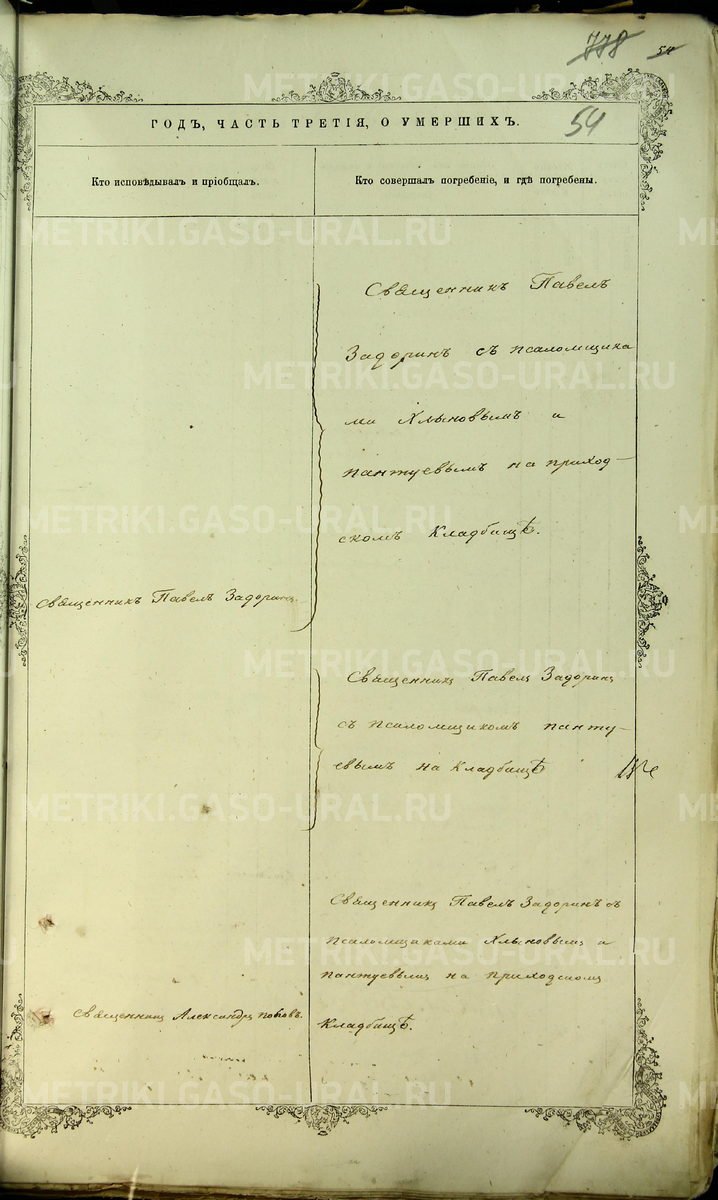 778
54
54
ГОДЪ, ЧАСТЬ ТРЕТІЯ, О УМЕРШИХЪ.
Кто исповѣдывалъ и пріобщалъ.
Кто совершалъ погребеніе, и гдѣ погребены.
Священникъ Павелъ
Задоринъ съ псаломщика
ми Хлыновымъ и
пантуевымъ на приход-
скомъ Кладбищѣ.
Священникъ Павелъ Задоринъ
Священникъ Павелъ Задоринъ
съ псаломщикомъ панту-
евымъ на Кладбищѣ
Священникъ Павелъ Задоринъ съ
псаломщиками Хлыновымъ и
пантуевымъ на приходскомъ
Кладбищѣ.
Священникъ Александръ поповъ.
METRIKI.GASO-URAL.RU